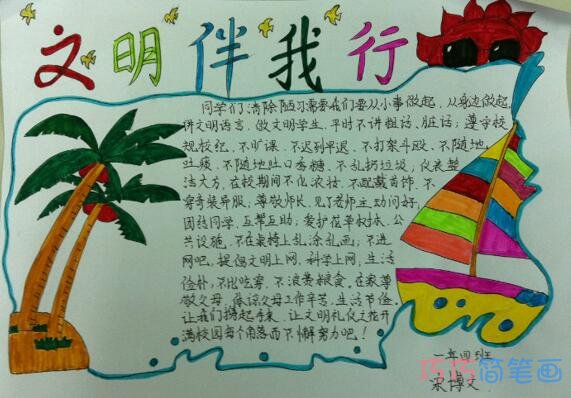 文明伴我行
同学们,清除陋习需要我们要从小事做起,从身边做起,
讲文明语言,做文明学生,平时不讲粗话、脏话;遵守校
规校纪,不旷课,不迟到早退,不打架斗殴,不随地
吐痰,不随地吐口香糖,不乱扔垃圾;仪表整
洁大方,在校期间不化浓妆,不配戴首饰,不
穿奇装异服,尊敬师长,见了老师主动问好,
团结同学,互帮互助;爱护花草树木、公
共设施,不在桌椅上乱涂乱画;不进
网吧,提倡文明上网,科学上网;生活
俭朴,不比吃穿,不浪费粮食,在家尊
敬父母,体谅父母工作辛苦,生活节俭。
让我们携起手来,让文明礼仪之花开
满校园每个角落而不懈努力吧!
一年四班
宋博文
巧巧简笔画